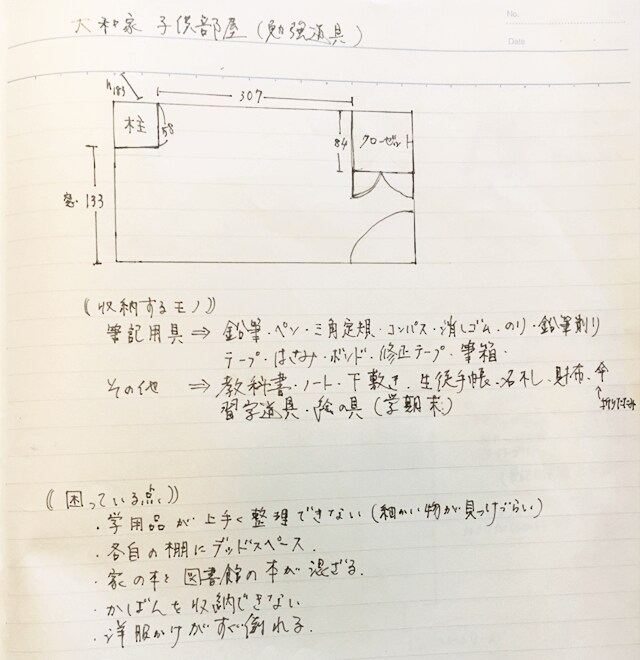 No.
Date
大和家 子供部屋 (勉強道具)
307
柱
58
84
クローゼット
窓・133
《収納するモノ》
筆記用具 ⇒ 鉛筆・ペン・三角定規・コンパス・消しゴム・のり・鉛筆削り
テープ・はさみ・ボンド・修正テープ・筆箱・
その他 ⇒ 教科書・ノート・下敷き・生徒手帳・名札・財布・傘
習字道具・絵の具 (学期末) ↑
折りたたみ
《困っている点》
・学用品が上手く整理できない (細かい物が見つけづらい)
・各自の棚にデッドスペース.
・家の本と図書館の本が混ざる.
・かばんを収納できない
・洋服かけがすぐ倒れる.